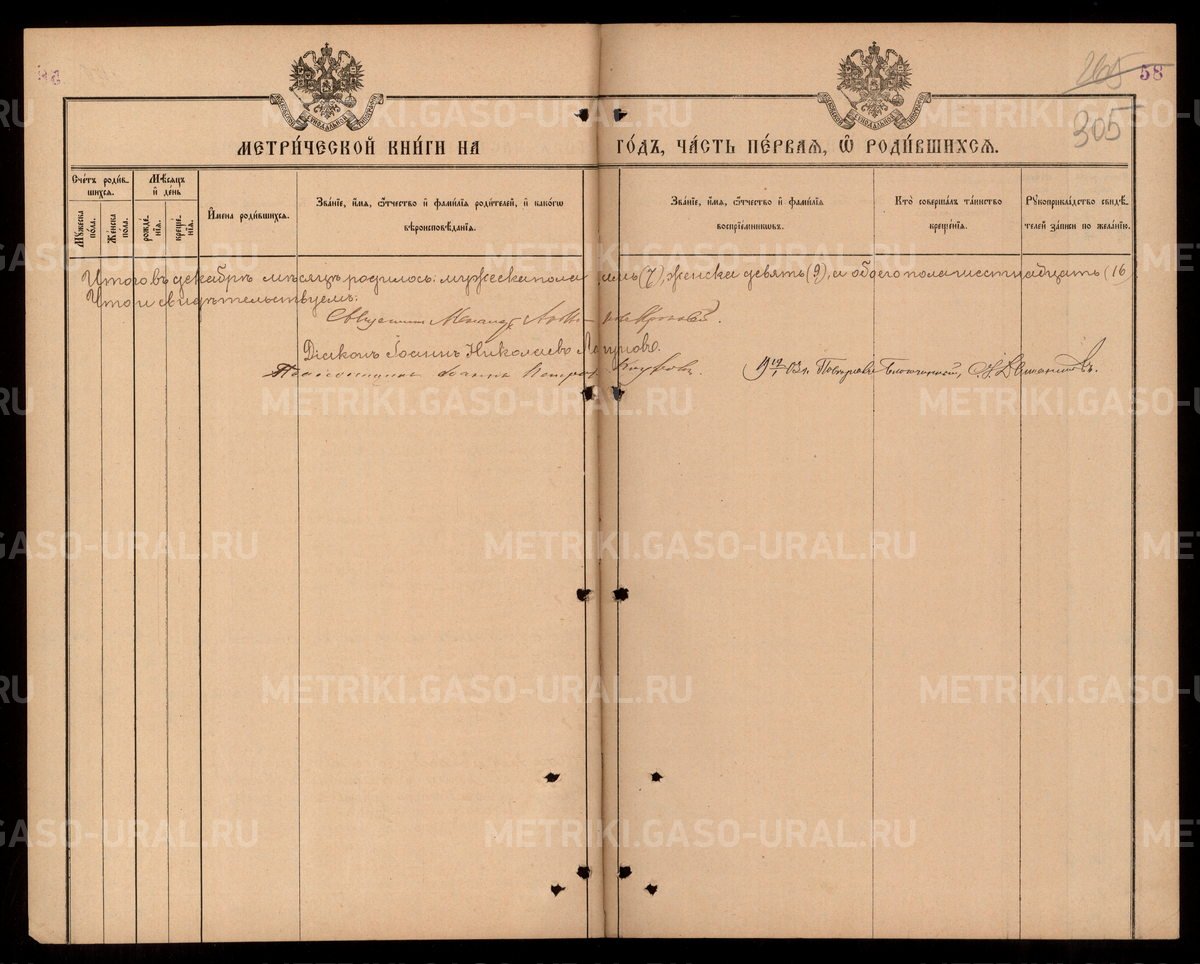 265 58
305
МЕТРИ́ЧЕСКОЙ КНИ́ГИ НА ГО́ДЪ, ЧА́СТЬ ПЕ́РВАЯ, Ѿ РОДИ́ВШИХСЯ.
Сче́тъ роди́в-
шихся.
Мꙋ́жеска
по́ла.
Же́нска
по́ла.
Мѣ́сяцъ
и҆ де́нь
рожде́-
нїя.
креще́-
нїя.
И҆мена̀ роди́вшихся.
Зва́нїе, и҆́мя, ѻ҆́тчество и҆ фами́лїя роди́телей, и҆ како́гѡ
вѣроисповѣ́данїя.
Зва́нїе, и҆́мя, ѻ҆́тчество и҆ фами́лїя
воспрїе́мникѡвъ.
Кто̀ соверша́лъ та́инство
креще́нїя.
Рꙋкоприкла́дство свидѣ́-
телей за́писи по жела́нїю.
Итого въ декабрѣ мѣсяцѣ родилось: мужеска пола семь (7), женска девять (9), а обоего пола шестнадцать (16)
Что и свидѣтельствуемъ:
Священникъ
Дїаконъ Іоаннъ Николаевъ
Псаломщикъ Іоаннъ Петровъ
METRIKI.GASO-URAL.RU